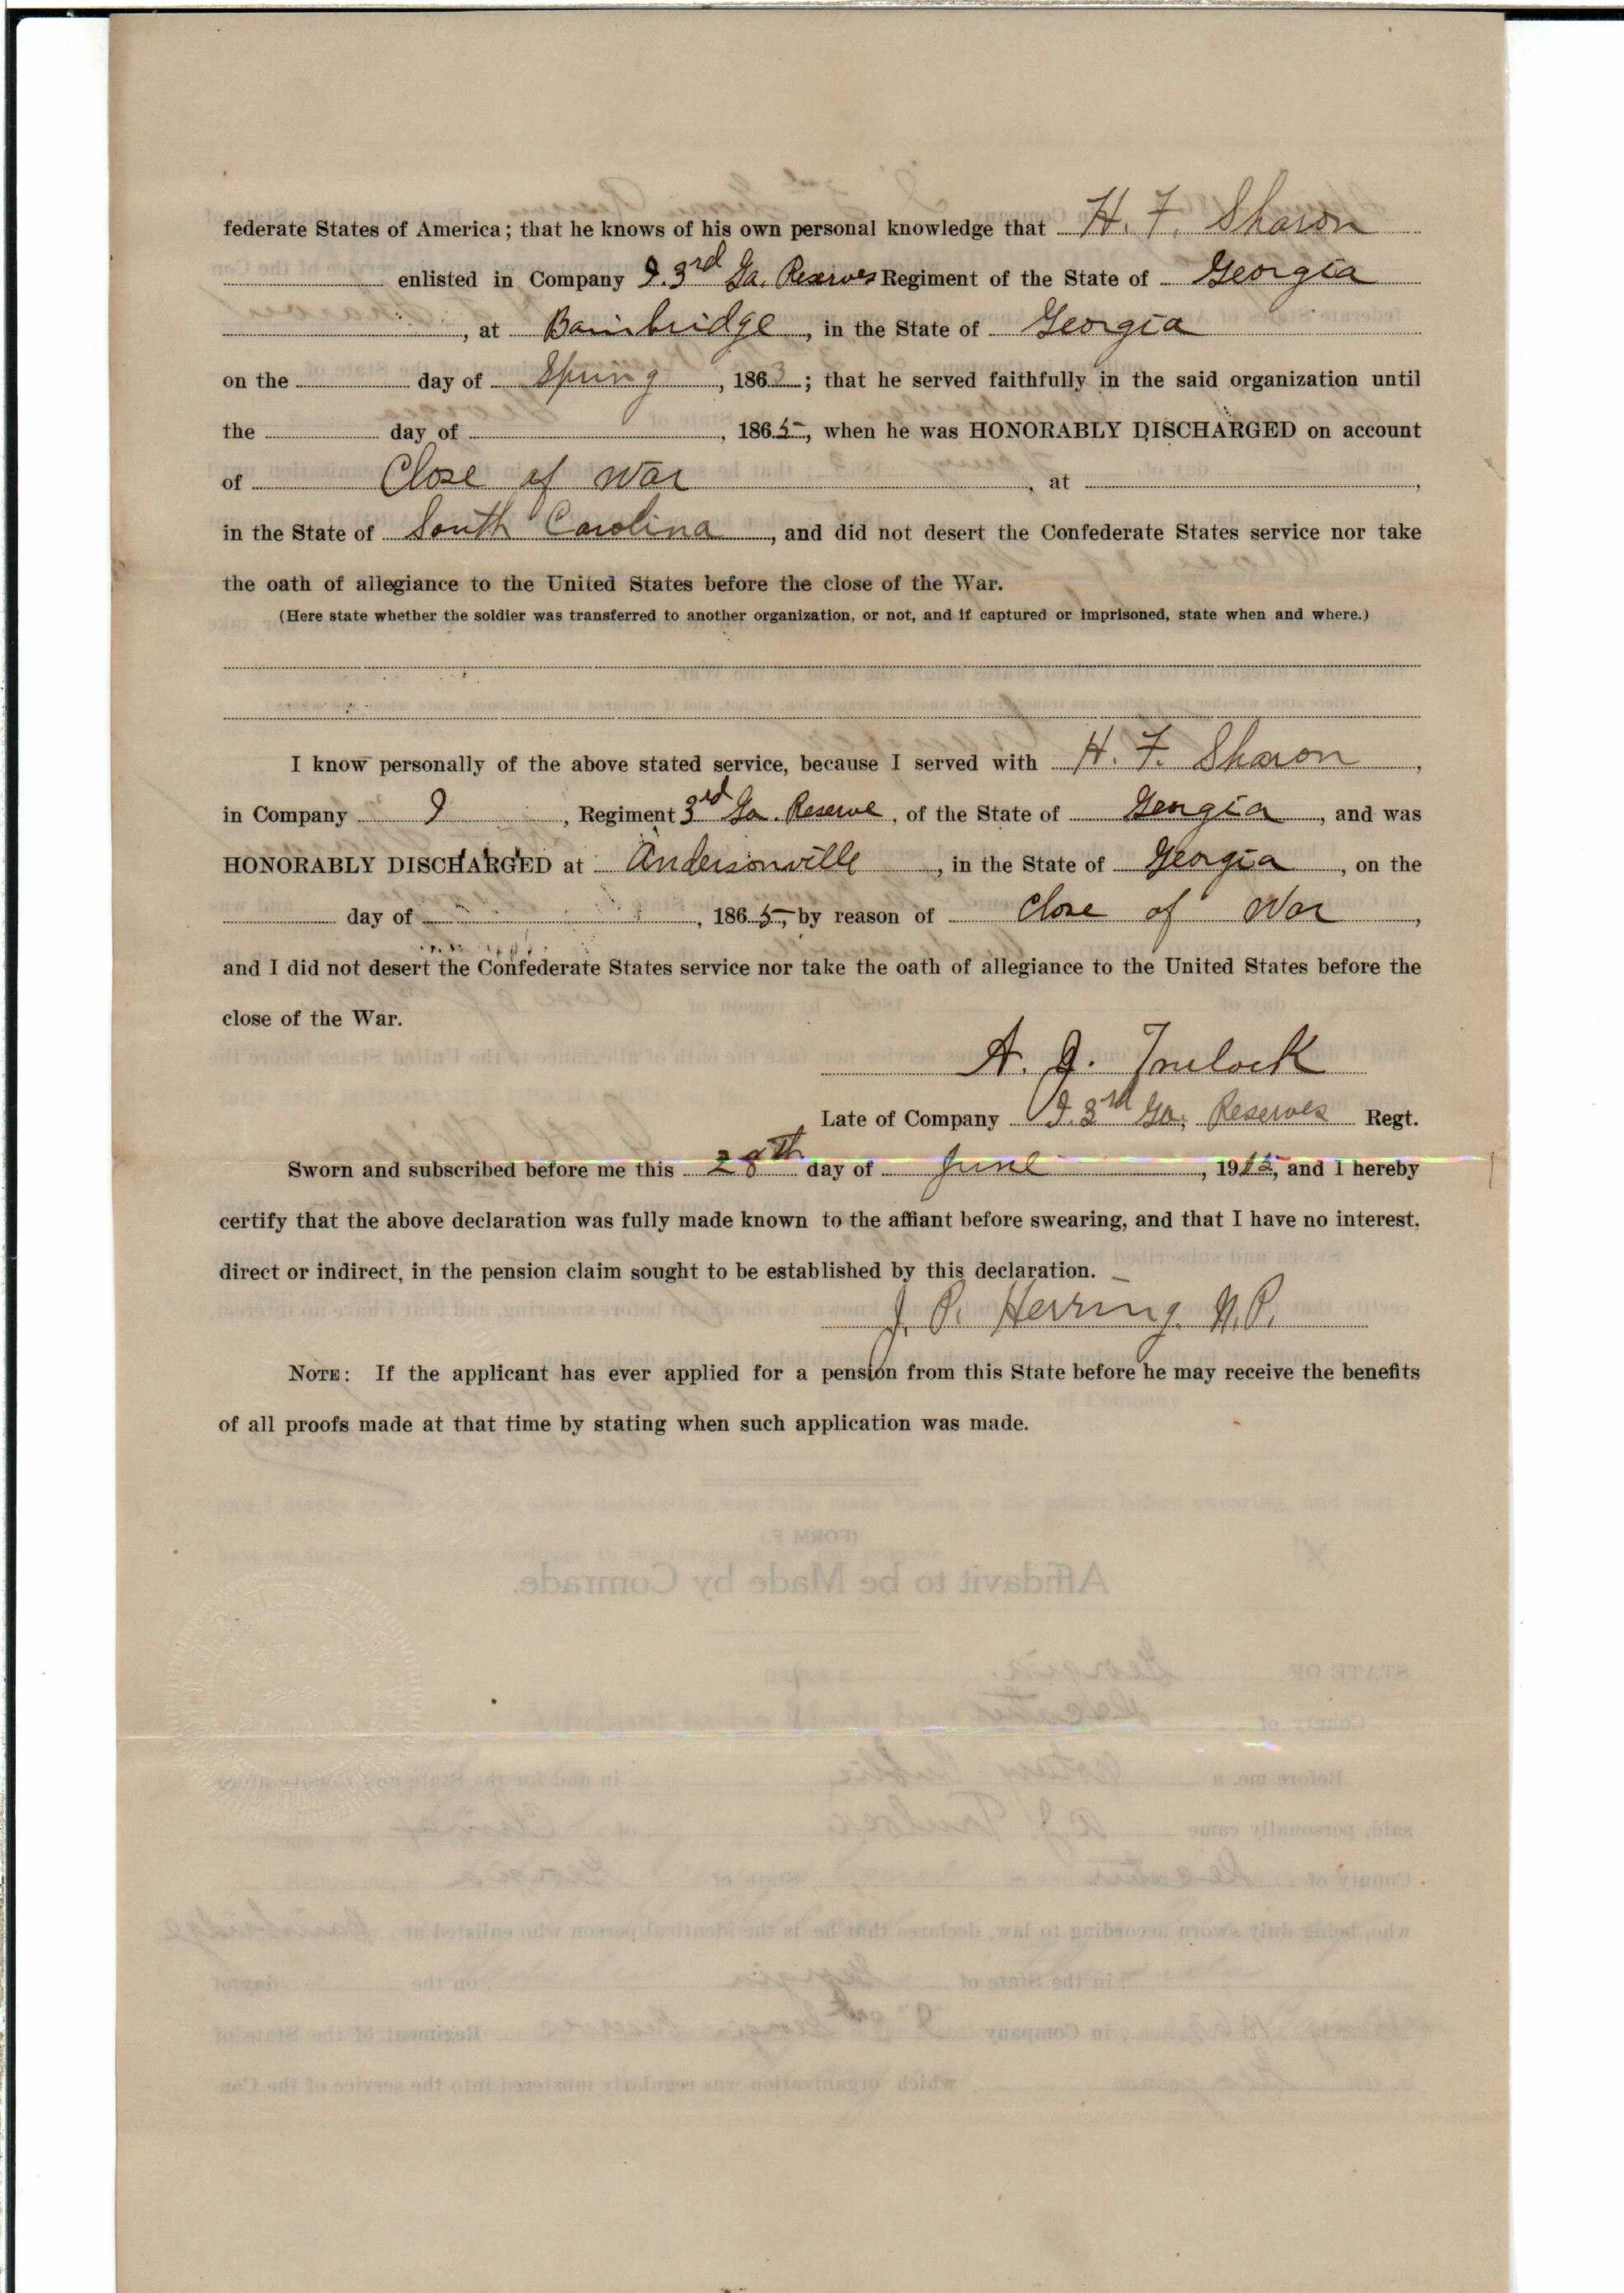 federate States of America; that he knows of his own personal knowledge that H. F. Sharon
enlisted in Company I. 3rd Ga. Reserves Regiment of the State of Georgia
, at Bainbridge, in the State of Georgia
on the day of Spring, 1863; that he served faithfully in the said organization until
the day of , 1865, when he was HONORABLY DISCHARGED on account
of Close of War , at ,
in the State of South Carolina, and did not desert the Confederate States service nor take
the oath of allegiance to the United States before the close of the War.
(Here state whether the soldier was transferred to another organization, or not, and if captured or imprisoned, state when and where.)
I know personally of the above stated service, because I served with H. F. Sharon,
in Company I, Regiment 3rd Ga. Reserve, of the State of Georgia, and was
HONORABLY DISCHARGED at Andersonville, in the State of Georgia, on the
day of , 1865, by reason of Close of War,
and I did not desert the Confederate States service nor take the oath of allegiance to the United States before the
close of the War.
A. J. Trulock
Late of Company I. 3rd Ga. Reserves Regt.
Sworn and subscribed before me this 28th day of June, 1915, and I hereby
certify that the above declaration was fully made known to the affiant before swearing, and that I have no interest,
direct or indirect, in the pension claim sought to be established by this declaration.
J. P. Herring. N.P.
NOTE: If the applicant has ever applied for a pension from this State before he may receive the benefits
of all proofs made at that time by stating when such application was made.